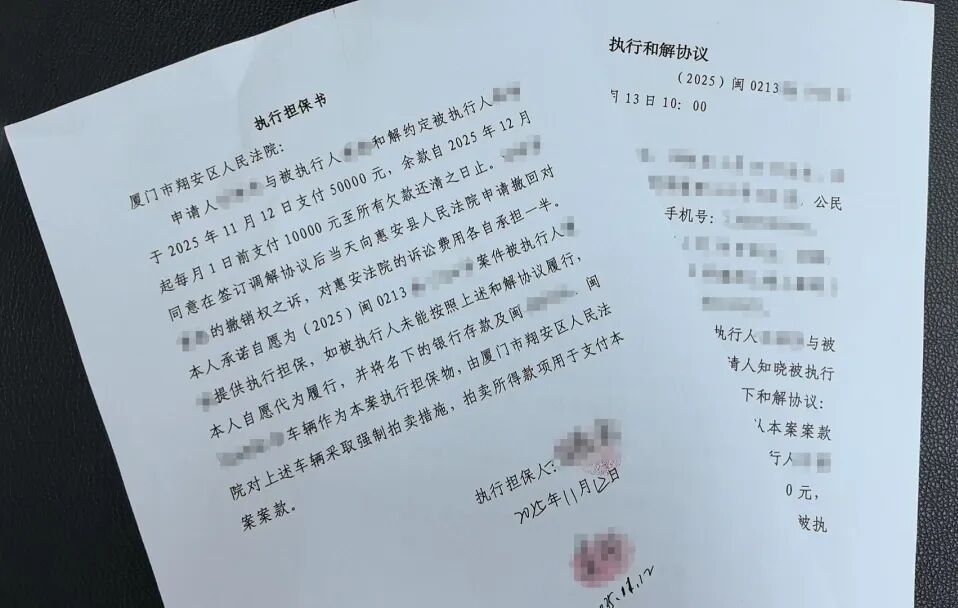 执行担保书
厦门市翔安区人民法院：
申请人与被执行人和解约定被执行人
于 2025 年 11 月 12 日支付 50000 元，余款自 2025 年 12 月
起每月 1 日前支付 10000 元至所有欠款还清之日止。
同意在签订调解协议后当天向惠安县人民法院申请撤回对
的撤销权之诉，对惠安法院的诉讼费用各自承担一半。
本人承诺自愿为（2025）闽 0213 案件被执行人
提供执行担保，如被执行人未能按照上述和解协议履行，
本人自愿代为履行，并将名下的银行存款及闽 、闽
车辆作为本案执行担保物，由厦门市翔安区人民法
院对上述车辆采取强制拍卖措施，拍卖所得款项用于支付本
案案款。
执行担保人：
2025年11月12日
执行和解协议
（2025）闽 0213
月 13 日 10：00
公民
手机号：
执行人 与被
请人知晓被执行
下和解协议：
从本案案款
行人
0 元，
被执